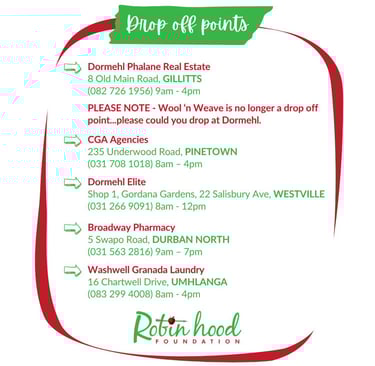 Drop off points
Dormehl Phalane Real Estate
8 Old Main Road, GILLITTS
(082 726 1956) 9am - 4pm
PLEASE NOTE - Wool 'n Weave is no longer a drop off
point...please could you drop at Dormehl.
CGA Agencies
235 Underwood Road, PINETOWN
(031 708 1018) 8am – 4pm
Dormehl Elite
Shop 1, Gordana Gardens, 22 Salisbury Ave, WESTVILLE
(031 266 9091) 8am - 12pm
Broadway Pharmacy
5 Swapo Road, DURBAN NORTH
(031 563 2816) 9am – 7pm
Washwell Granada Laundry
16 Chartwell Drive, UMHLANGA
(083 299 4008) 8am - 4pm
Robin hood
FOUNDATION